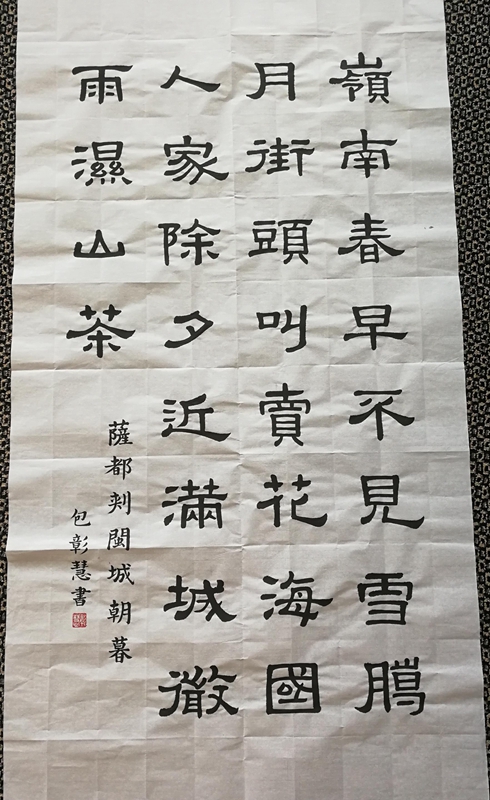 嶺南春早不見雪臈
月街頭叫賣花海國
人家除夕近滿城微
雨濕山茶
薩都剌閩城朝暮
包彰慧書